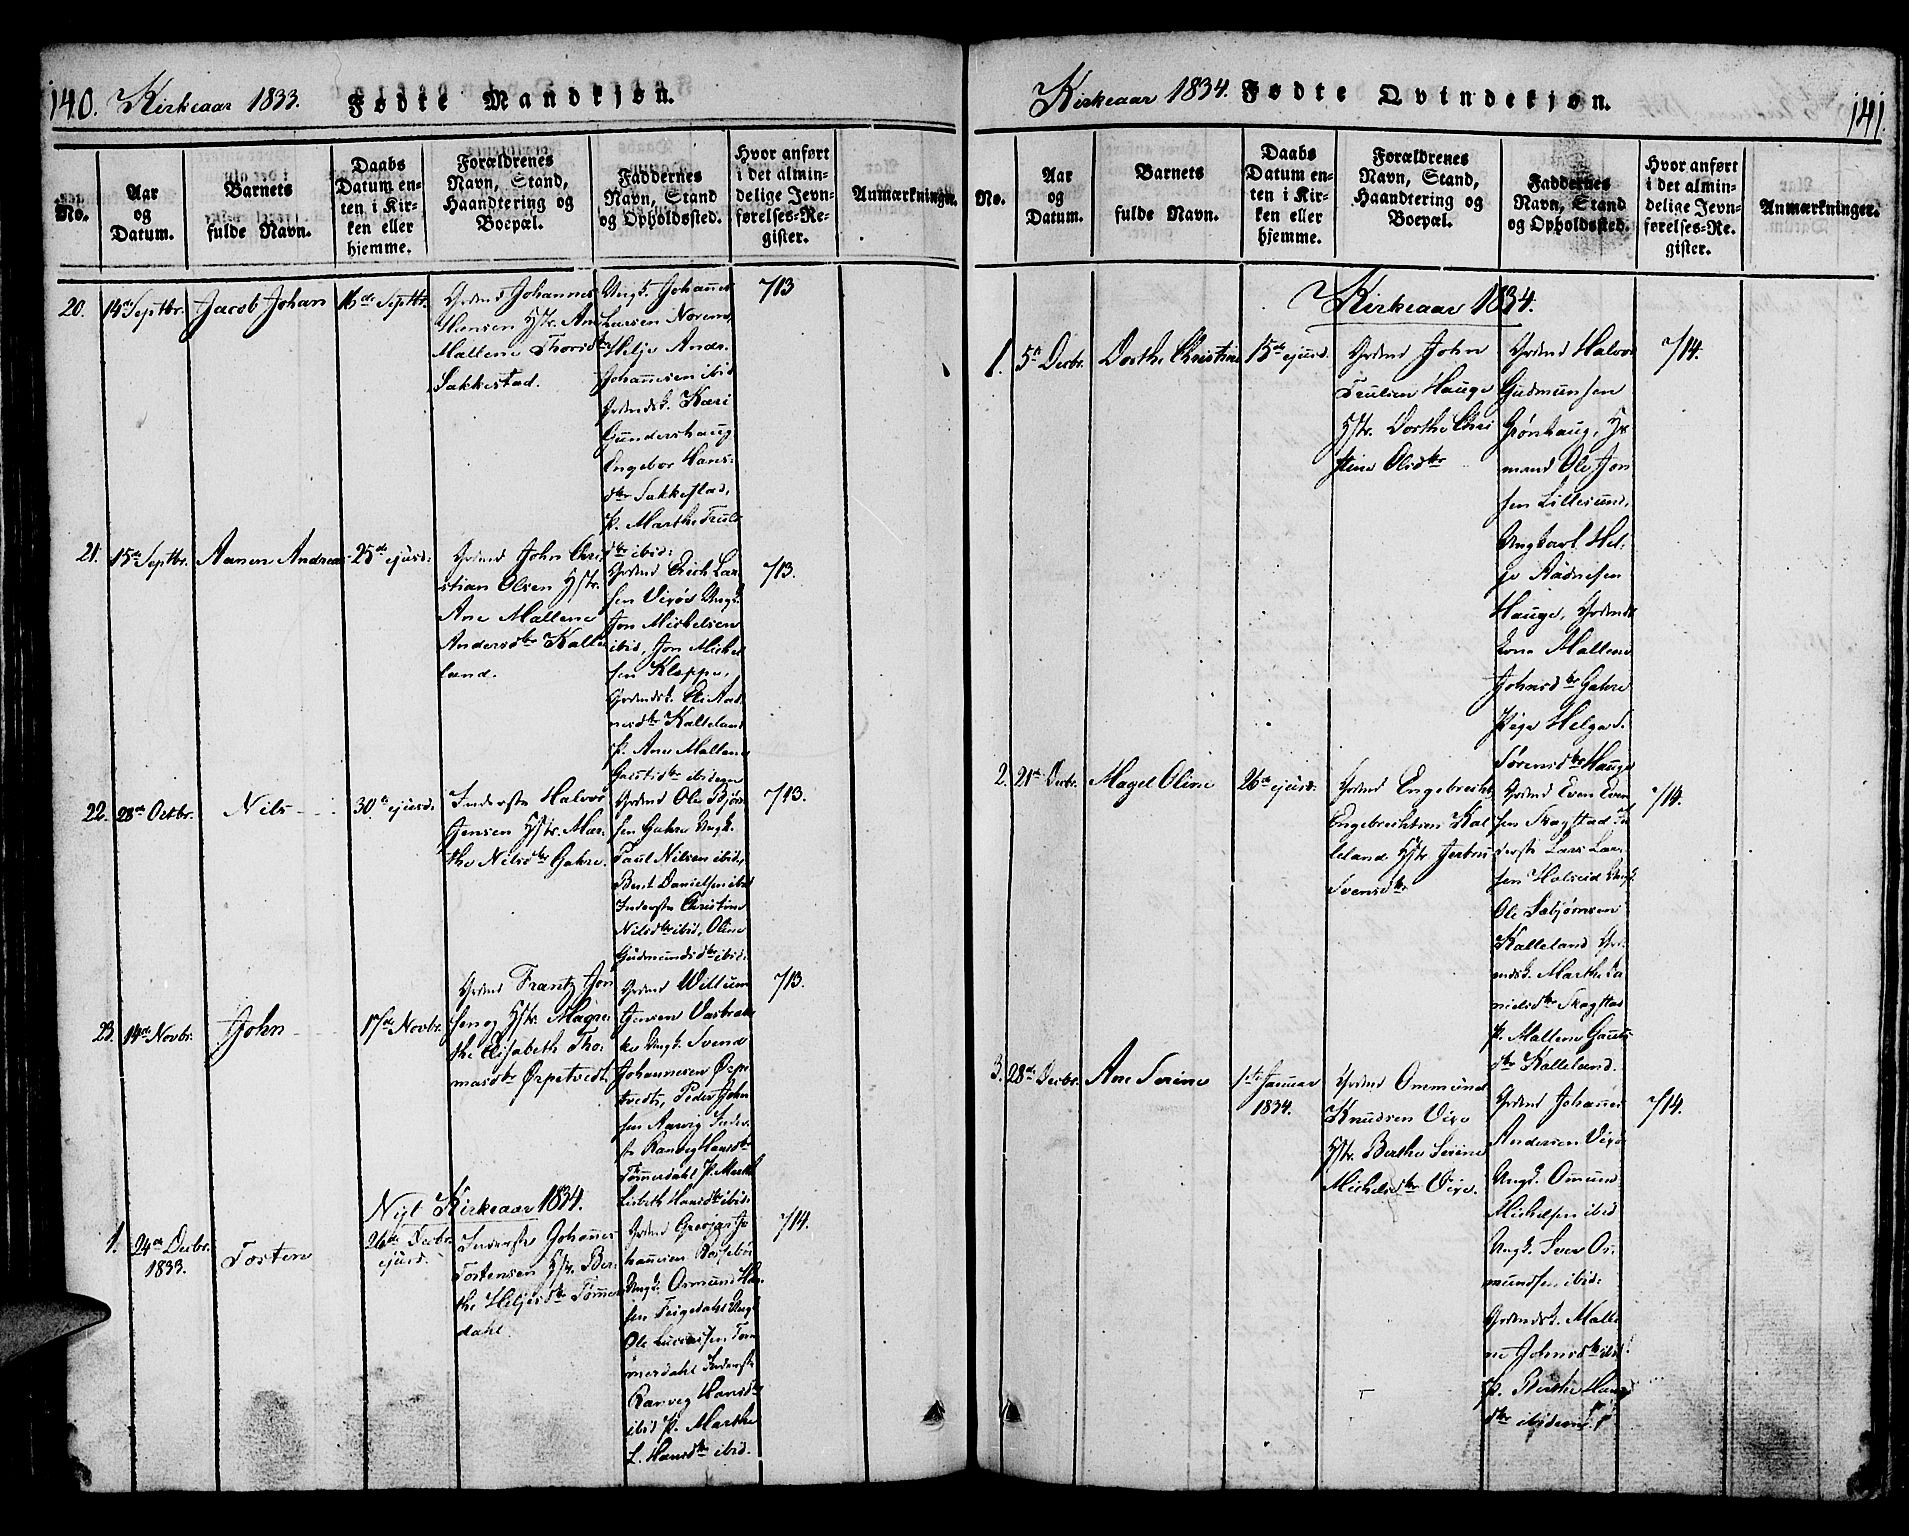 140. Kirkeaar 1833. Fødte Mandkjøn.
No.
Aar
og
Datum.
Barnets
fulde Navn.
Daabs
Datum en-
ten i Kir-
ken eller
hjemme.
Forældrenes
Navn, Stand,
Haandtering og
Boepæl.
Faddernes
Navn, Stand
og Opholdssted.
Hvor anført
i det almin-
delige Jevn-
førelses-Re-
gister.
Anmærkninger.
20. 14de Septbr. Jacob Johan 16de Septbr.
Grdmd Johannes
Hansen Hstr. Ane
Mallene Thorsdtr
Sakkestad.
Ungk. Johannes
Larsen Norem,
Helje Andr.
Johannesen ibid
Grdmdsk. Kari
Gundershaug
Engebor Hans-
dtr Sakkestad,
P. Marthe Truls
dtr ibid:
713
21. 15de Septbr. Aanen Andreas 25de ejusd:
Grdmd John Chri
stian Olsen Hstr.
Ane Mallene
Andersdtr Kalle
land.
Grdmd Erich Lar-
sen Vixøe Ungk.
Jon Michelsen
ibid, Jon Michel
sen Kleppe,
Grdmdsk. Eli Aad
nesdtr Kalleland
P. Ane Mallene
Gautsdtr ibidem
713.
22. 28de Octbr. Nils 30te ejusd:
Inderste Halvor
Jensen Hstr. Mar-
the Nilsdtr Gahre.
Grdmd Ole Bjørn
sen Gahre Ungk.
Paul Nilsen ibid,
Bent Danielsen ibid
Inderste Christine
Nilsdtr ibid, Oline
Gudmundsdtr ibid:
713.
23. 14de Novbr. John 17de Novbr.
Grdmd Frantz Jon
sen og Hstr. Magre
the Elisabeth Tho-
masdtr Ørpetvedt.
Grdmd Willum
Jensen Vastrak
Ungk. Svend
Johannesen Ørpe
tvedt, Peder John
sen Aarvig Inder-
st. Ranveg Hansdtr
Tømmerdahl P. Marthe
Lisbeth Hansdtr ibid:
713.
Nyt Kirkeaar 1834.
1. 24de Decbr.
1833.
Tosten
26de Decbr.
ejusd.
Inderste Johannes
Tostensen Hstr. Ber-
the Heljesdtr Tømmer
dahl.
Grdmd Gregar Jo
hannesen Rossebøe
Ungk. Osmund Han
sen Feigedahl Ungk
Ole Larsen Tøm
merdahl Inderste
Ranveg Hansdtr
ibid P. Marthe
L. Hansdtr ibid.
714.
Kirkeaar 1834. Fødte Qvindekjøn. 141.
No.
Aar
og
Datum.
Barnets
fulde Navn.
Daabs
Datum en-
ten i Kir-
ken eller
hjemme.
Forældrenes
Navn, Stand,
Haandtering og
Boepæl.
Faddernes
Navn, Stand
og Opholdssted.
Hvor anført
i det almin-
delige Jevn-
førelses-Re-
gister.
Anmærkninger.
Kirkeaar 1834.
1. 5te Decbr. Dorthe Christine 15de ejusd.
Grdmd John
Trulsen Hauge
Hstr. Dorthe Chri
stine Olsdtr
Grdmd Halvor
Gudmunsen
Grønhaug, Hr
mand Ole Jon
sen Lillesund,
Ungkarl Hel-
je Aadnesen
Hauge, Grdmdsk
Lone Mallene
Johnsdtr Gahre
Pige Helga S.
Sørensdtr Hauge
714.
2. 21de Decbr. Magel Oline 26de ejusd:
Grdmd Engebrecht
Engebrechtsen Kal
leland, Hstr. Jertru
Svensdtr
Grdmd Even Even
sen Skogstad In
derste Lars Lar-
sen Halseid Ungk.
Ole Sebjørnsen
Kalleland Gr-
mdsk. Marthe Da
nielsdtr Skogstad
P. Mallene Gauts
dtr Kalleland.
714.
3. 28de Decbr. Ane Serine
1ste Januar
1834.
Grdmd Ommund
Knudsen Vixe
Hstr. Berthe Serine
Michelsdtr Vixe.
Grdmd Johannes
Andersen Vixe
Ungk. Omund
Michelsen ibid
Ungk. Sven Os-
mundsen ibid:
Grdmdsk. Malle
ne Johnsdtr ibid:
P. Berthe Hans
dtr ibidem.
714.